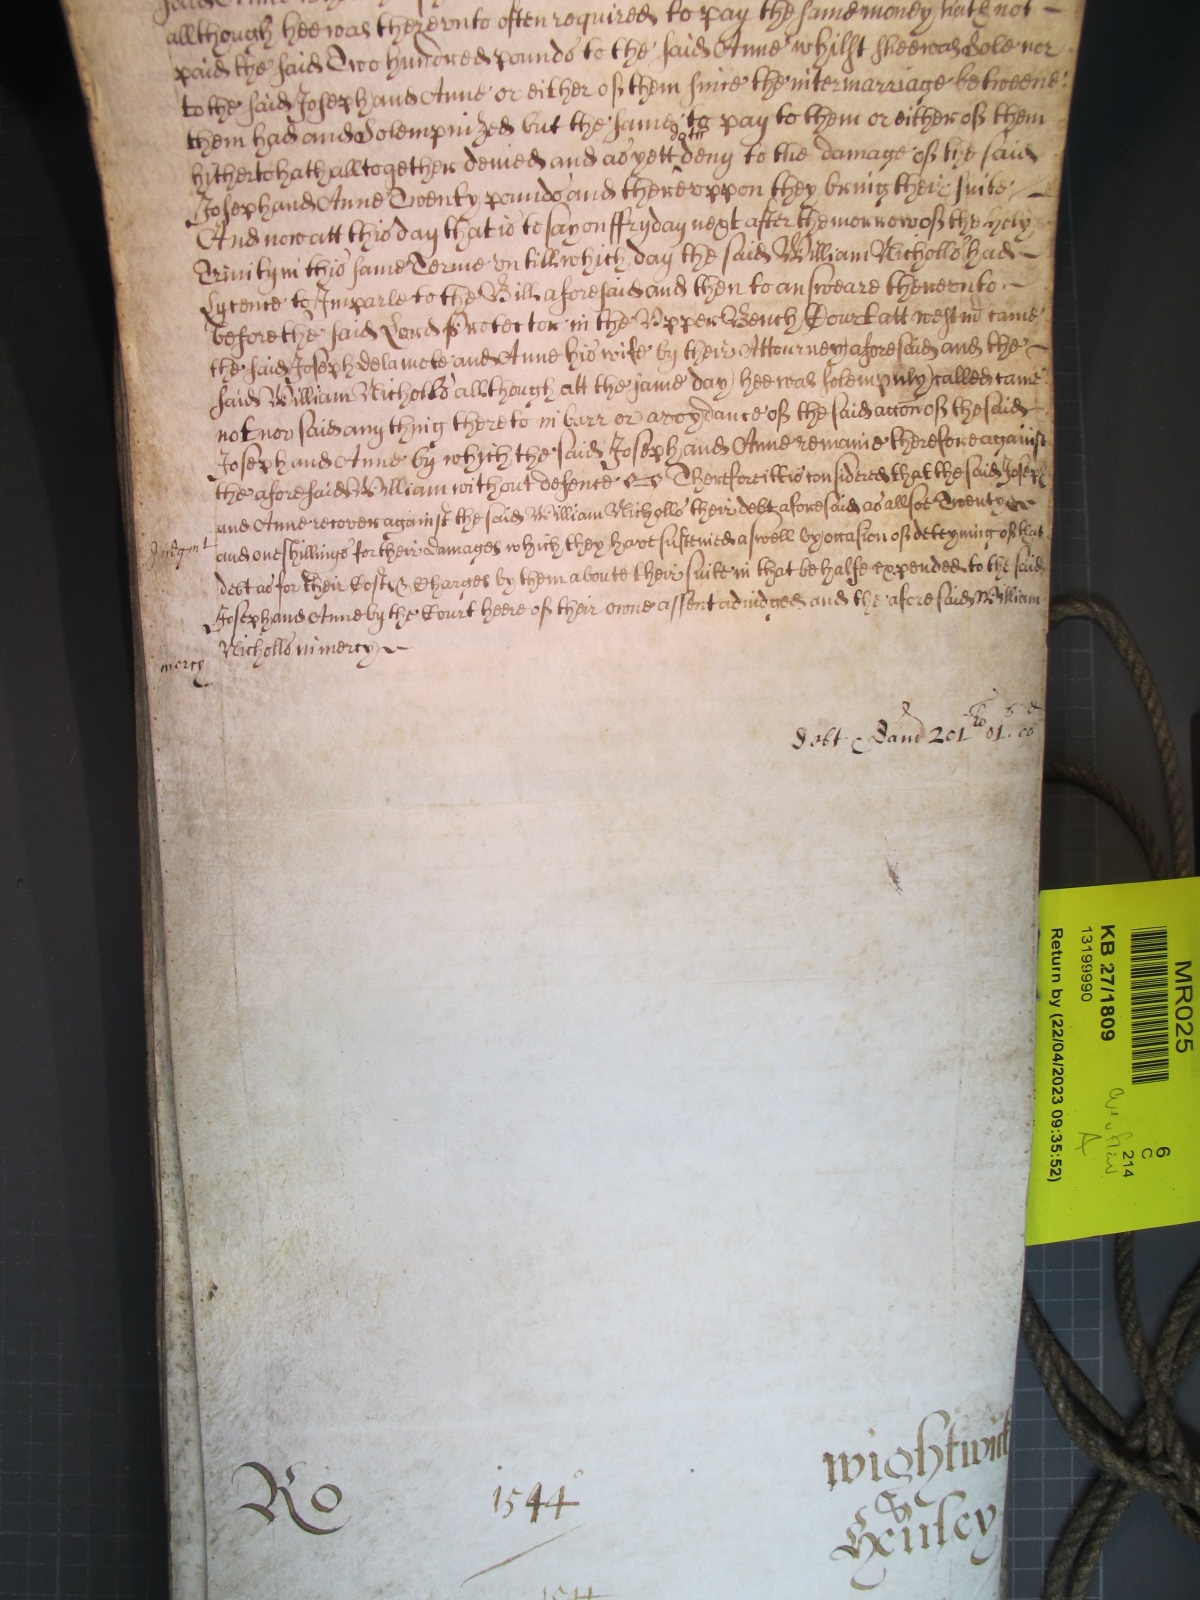 said Anne
allthough hee was therevnto often required to pay the same money hath not
paid the said Two hundred pounds to the said Anne whilst shee was Sole nor
to the said Joseph and Anne or either of them since the intermarriage betweene
them had and Solempnized but the same to pay to them or either of them
doth
hitherto hath alltogether denied and as yett deny to the damage of the said
Joseph and Anne Twenty pounds and therevppon they bring their suite
And now att this day that is to say on ffryday next after the morrow of the holy
Trinity in this same Terme vntill which day the said William Nicholls had
Lycence to Imparle to the Bill aforesaid and then to answeare therevnto
before the said Lord Protector in the Vpper Bench Court att westm came
the said Joseph Delamote and Anne his wife by their Attourney aforesaid and the
said William Nicholls allthough att the same day hee was solempnly called came
not nor said any thing thereto in barr or avoydance of the said accon of the said
Joseph and Anne by which the said Joseph and Anne remaine therefore against
the aforesaid William without defence Therefore itt is considered that the said Joseph
and Anne recover against the said William Nicholls their debt aforesaid as allsoe Twenty
Judgmt
and one shillings for their damages which they have susteined aswell by occasion of deteyning of that
debt as for their Costs & Charges by them aboute their suite in that behalfe expended to the said
Joseph and Anne by the Court heere of their owne assent adiudged and the aforesaid William
mercy
Nicholls in mercy
debt & Dam 201 li 01 s 00 d
Ro 1544
wightwick
&
Henley
MR025
KB 27/1809
13199990
Return by (22/04/2023 09:35:52)
6
C
214
A